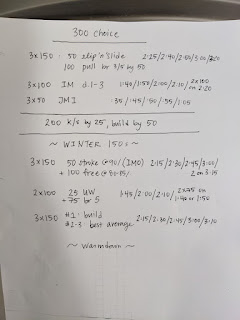 300 choice
3x150 : 50 slip 'n' slide 2:25/2:40/2:50/3:00/3:20
100 pull br 3/5 by 50
3x100 IM d. 1-3 1:40/1:50/2:00/2:10/ 2x100
on 2:20
3x50 JMI :35/:45/:50/:55/1:05
200 k/s by 25, build by 50
~ WINTER 150s ~
3x150 50 stroke @90/(IMO) 2:15/2:30/2:45/3:00/
+ 100 free @80-85% 2 on 3:15
2x100 25 UW 1:45/2:00/2:10/ 2x75 on
+ 75 br 5 1:40 or 1:50
3x150 #1: build 2:15/2:30/2:45/3:00/3:10
#2-3 best average
~ Warmdown ~